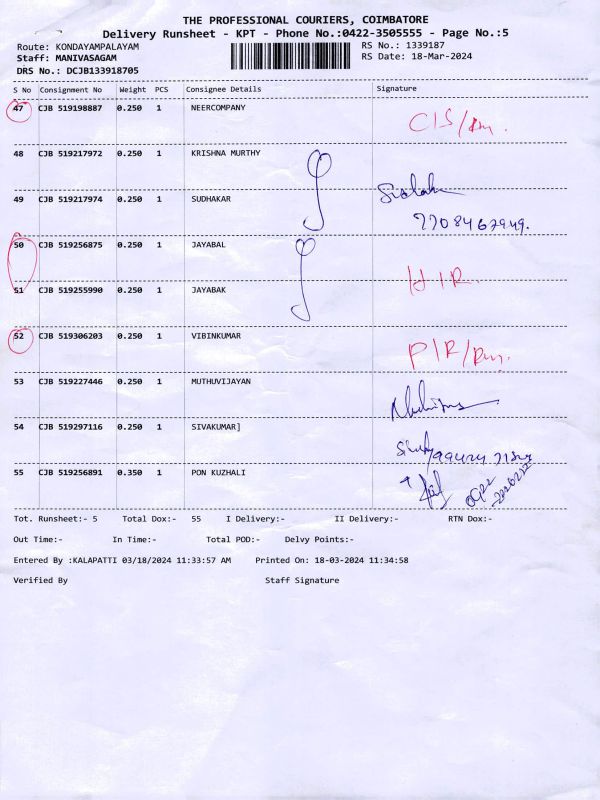 THE PROFESSIONAL COURIERS, COIMBATORE
Delivery Runsheet - KPT - Phone No.:0422-3505555 - Page No.:5
Route: KONDAYAMPALAYAM RS No.: 1339187
Staff: MANIVASAGAM RS Date: 18-Mar-2024
DRS No.: DCJB133918705
S No Consignment No Weight PCS Consignee Details Signature
47 CJB 519198887 0.250 1 NEERCOMPANY
48 CJB 519217972 0.250 1 KRISHNA MURTHY
49 CJB 519217974 0.250 1 SUDHAKAR
7708467949.
50 CJB 519256875 0.250 1 JAYABAL
51 CJB 519255990 0.250 1 JAYABAK
52 CJB 519306203 0.250 1 VIBINKUMAR
53 CJB 519227446 0.250 1 MUTHUVIJAYAN
54 CJB 519297116 0.250 1 SIVAKUMAR]
55 CJB 519256891 0.350 1 PON KUZHALI
Tot. Runsheet:- 5 Total Dox:- 55 I Delivery:- II Delivery:- RTN Dox:-
Out Time:- In Time:- Total POD:- Delvy Points:-
Entered By :KALAPATTI 03/18/2024 11:33:57 AM Printed On: 18-03-2024 11:34:58
Verified By Staff Signature